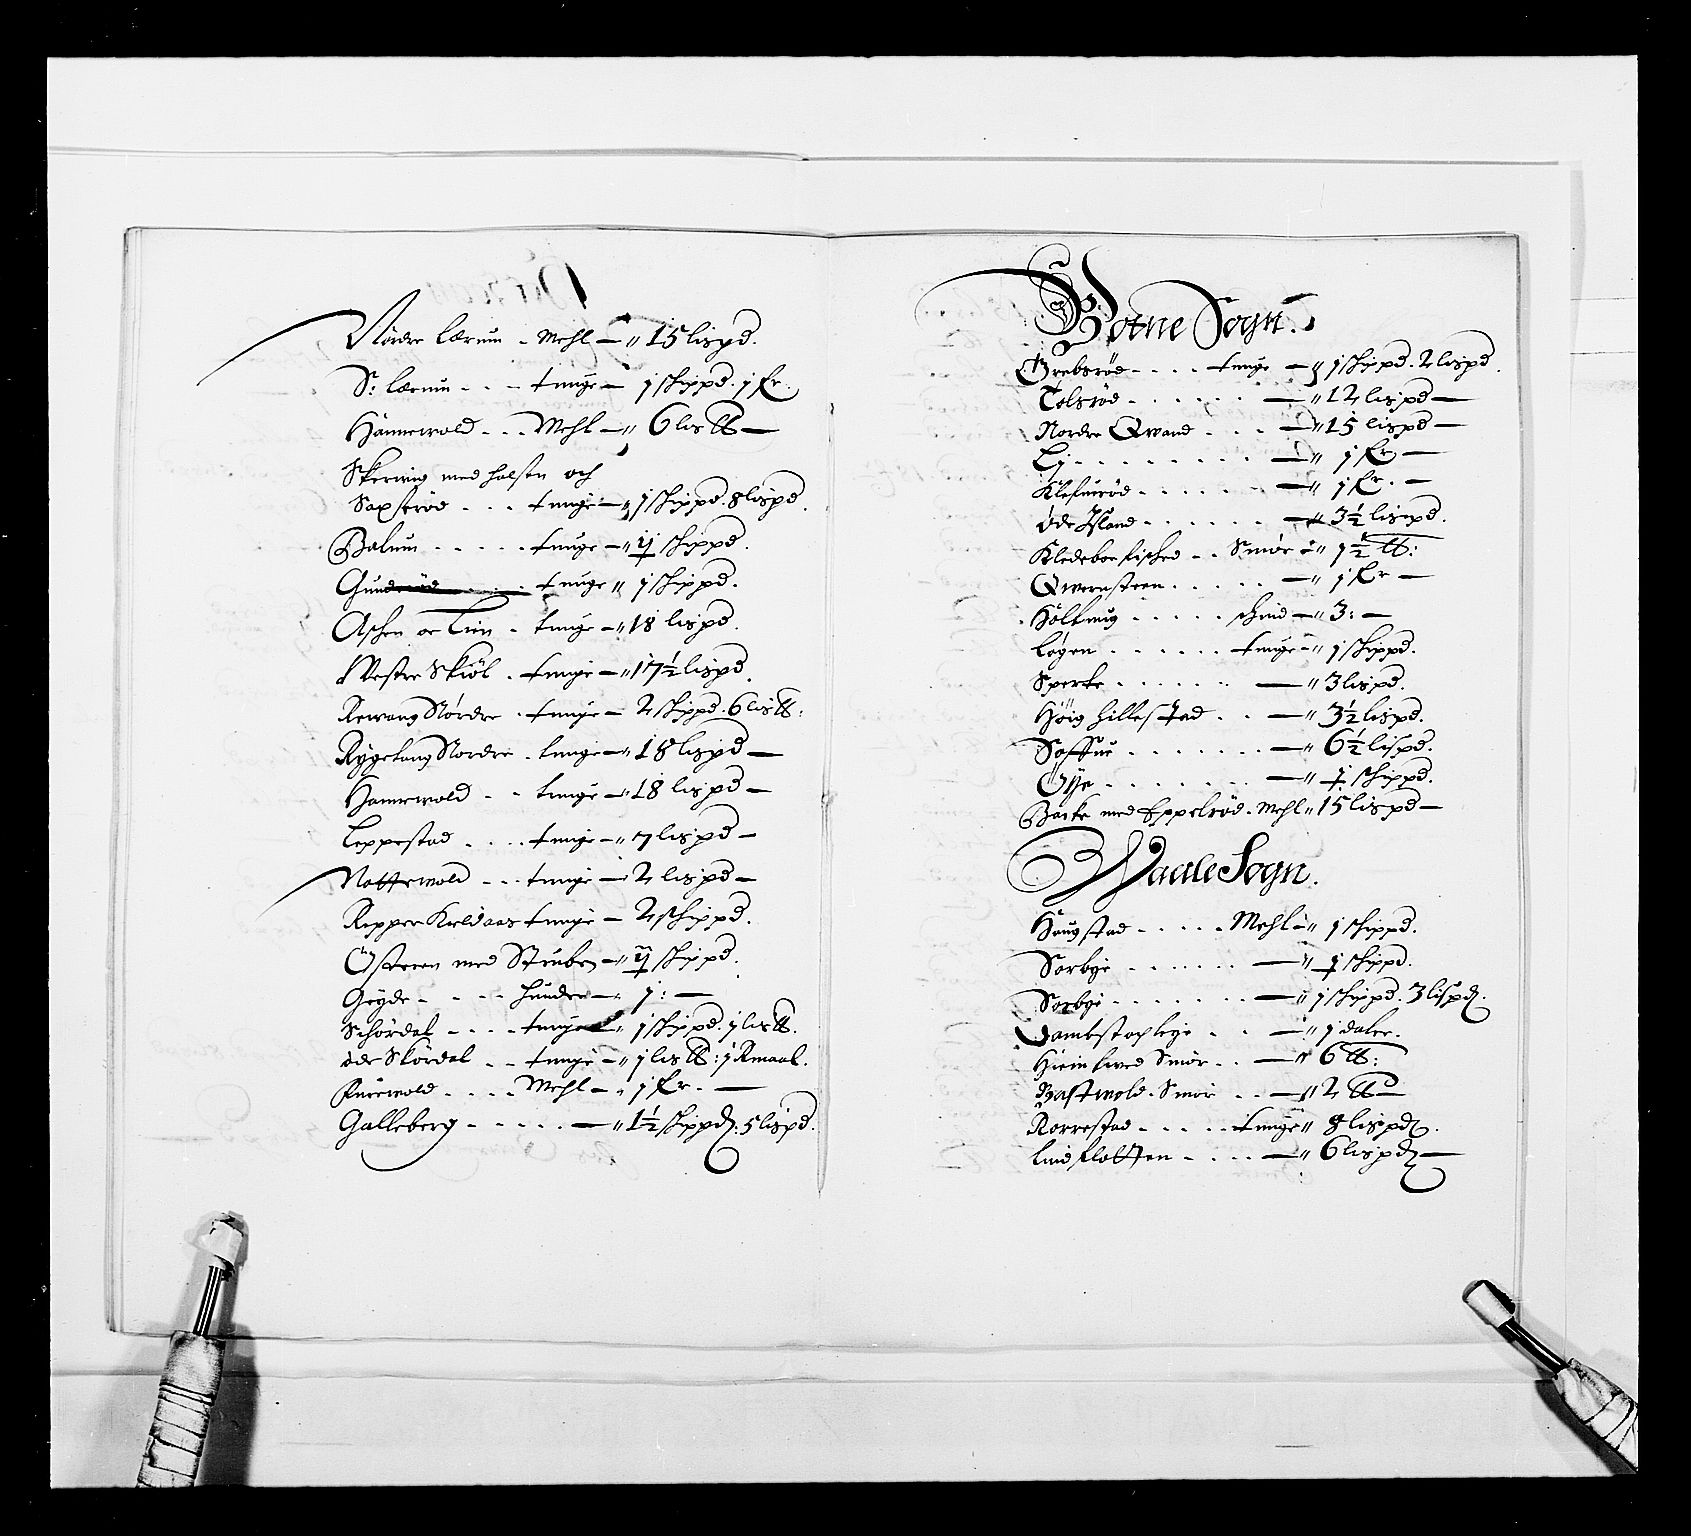 Nordre Lærum - Mehl — 15 lispd.
S: Lærum - - - tunge — 1 schippd. 1 Kr.
Hannewold - - - Mehl — 6 lis ℔ —
Skerwig med halsen och
Saxserød - - - tunge — 1 schippd. 8 lispd.
Balum - - - - - tunge — schippd.
Gunderød - - - tunge 1 schippd.
Aschen oc Lien - tunge — 18 lispd.
Westre Skiöl - tunge — 17½ lispd.
Rewang Nördre - tunge — 2 schippd. 6 lis ℔:
Rygetang Nordre - tunge — 18 lispd —
Hanewold - - tunge — 18 lispd —
Leppestad - - - - tunge — 7 lispd —
Notterwold - - - tunge — 2 lispd —
Repper Kieldaas tunge — 2 schippd.
Østeren med Struben — schippd.
Gøyde - - - - huuder — 1: —
Schördal - - - - tunge 1 schippd. 1 lis ℔.
øde Skördal - - tunge — 1 lis ℔: 1 Rmaal.
Furewold - - - - Mehl — 1 Kr. —
Galleberg - - - - - — 1½ schippd: 5 lispd.
Botne Sogn.
Grebsröd - - - - tunge — 1 schippd. 2 lispd.
Tolsröd - - - - - — 12 lispd —
Nordre Qwand - - - - — 15 lispd —
Li - - - - - - - — 1 Kr —
Klefuiröd - - - - - - — 1 Kr. —
øde Island - - - - - - — 3½ lispd.
Kledeboe fisched - - Smör 1½ ℔:
Qwernsteen - - - - - — 1 Kr —
Holtung - - - - - schind — 3: —
Løgen - - - - - - tunge — 1 schippd.
Sperke - - - - - - — 3 lispd.
Höig hillestad - - - — 3½ lispd.
Soffue - - - - - - - — 6½ lispd.
Öye - - - - - - — schippd.
Backe med Eppelröd - Mehl 15 lispd —
Waale Sogn.
Haugstad - - - - - Mehl 1 schippd.
Sørbye - - - - - - — schippd.
Sørbye - - - - - - - — 1 schippd. 3 lispd.
- - — 1 daler.
Smör - - — 6 ℔:
Bastwold - Smör - - — 2 ℔ —
Rorrestad - - - - - tunge 8 lispd.
Lindflotten - - - - — 6 lispd —